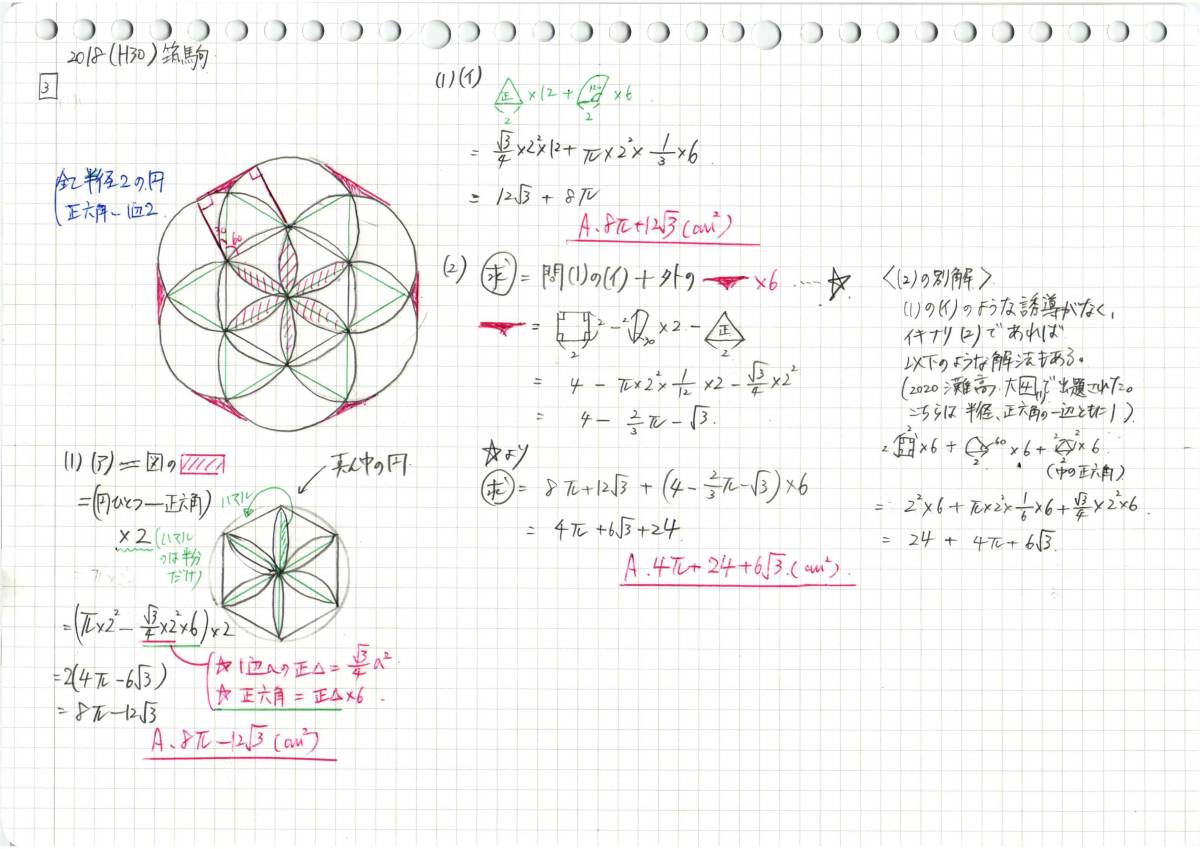 2018(H30)筑駒
3
全て半径2の円
正六角一辺2
60
(1)(ア)=図の
=(円ひとつ-正六角)
×2
(ハマル
のは半分
だけ)
真ん中の円
ハマル
=(π×2²-√3/4×2²×6)×2
=2(4π-6√3)
=8π-12√3
A.8π-12√3(cm²)
☆1辺aの正△=√3/4a²
☆正六角=正△×6
(1)(イ)
正×12+120×6
2 2
=√3/4×2²×12+π×2²×1/3×6
=12√3+8π
A.8π+12√3(cm²)
(2) 求=問(1)の(イ)+外の×6……☆
= 2 - 2 30 ×2- 正
2 2
=4-π×2²×1/12×2-√3/4×2²
=4-2/3π-√3.
☆より
求=8π+12√3+(4-2/3π-√3)×6
=4π+6√3+24
A.4π+24+6√3.(cm²)
<(2)の別解>
(1)の(イ)のような誘導がなく,
イキナリ(2)であれば
以下のような解法もある。
(2020灘高.大問で出題された。
こちらは半径、正六角の一辺ともに1)
2×6+60×6+2×6
2
(中の正六角)
=2²×6+π×2²×1/6×6+√3/4×2²×6
=24+4π+6√3